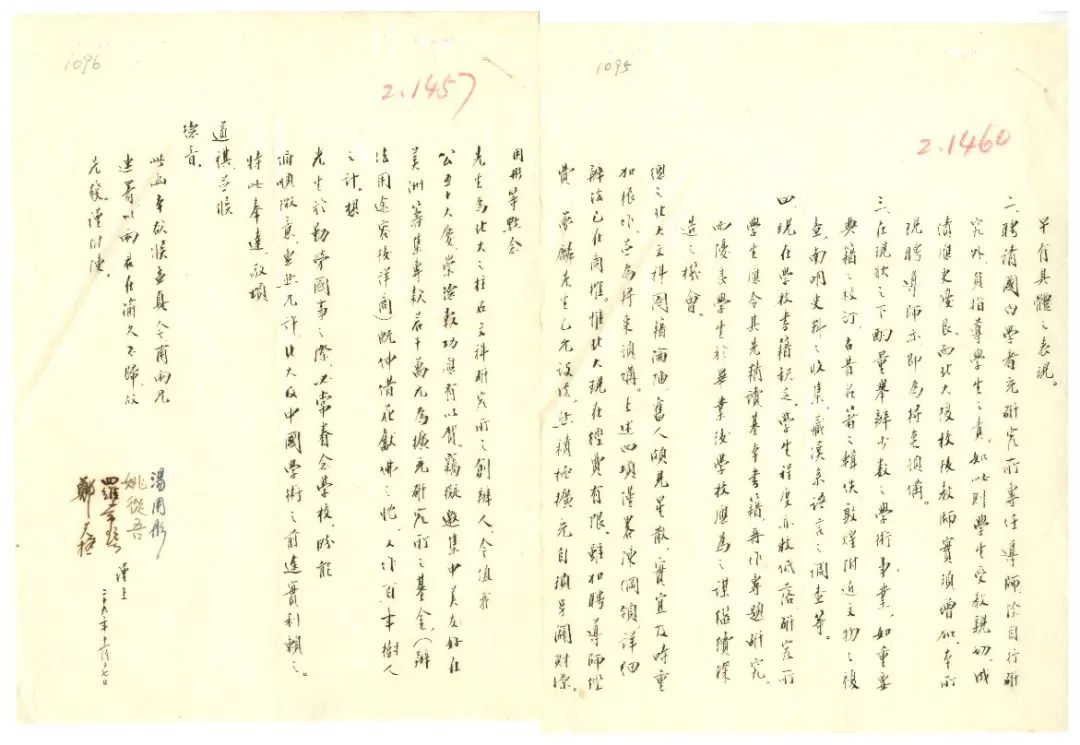 1095
2.1460
早有具體之表現。
二、聘請國內學者充研究所專任導師,除自行研
究外,負指導學生之責。如此則學生受教親切,成
績應更優良。而北大復校後教師實須增加,本所
現聘導師亦即為將來預備。
三、在現狀之下酌量舉辦少數之學術事業,如重要
典籍之校訂,古昔名著之輯佚,敦煌附近文物之複
查,南明史料之收集,藏漢系語言之調查等。
四、現在學校書籍缺乏,學生程度亦較低落,研究所
學生應令其先精讀基本書籍,再作專題研究。
而優良學生於畢業後學校應為之謀繼續深
造之機會。
總之北大文科圖籍淪陷,舊人頗見星散,實宜及時重
加振作,并為將來預備。上述四項僅略陳綱領,詳細
辦法已在商榷。惟北大現在經費有限,雖如聘導師經
費 夢麟先生已允設法。然積極擴充自須另闢財源。
1096
2.1457
用彤等默念
先生為北大之柱石,文科研究所之創辦人。今值我
公五十大慶,崇德報功應有以賀。竊擬邀集中美友好在
美洲籌集專款若干萬元為擴充研究所之基金。(辦
法用途容後詳商)既伸借花獻佛之忱,又作百年樹人
之計。想
先生於勤勞國事之際,必常眷念學校,盼能
俯順微意,惠然允許,北大及中國學術之前途實利賴之。
特此奉達,敬頌
道祺并候
德音。
湯用彤
姚從吾
羅常培
鄭天挺
謹上
二十九年十二月十七日
此函本欲候孟真、今甫兩兄
連署,以兩君在渝久不歸,故
先發。謹附陳。